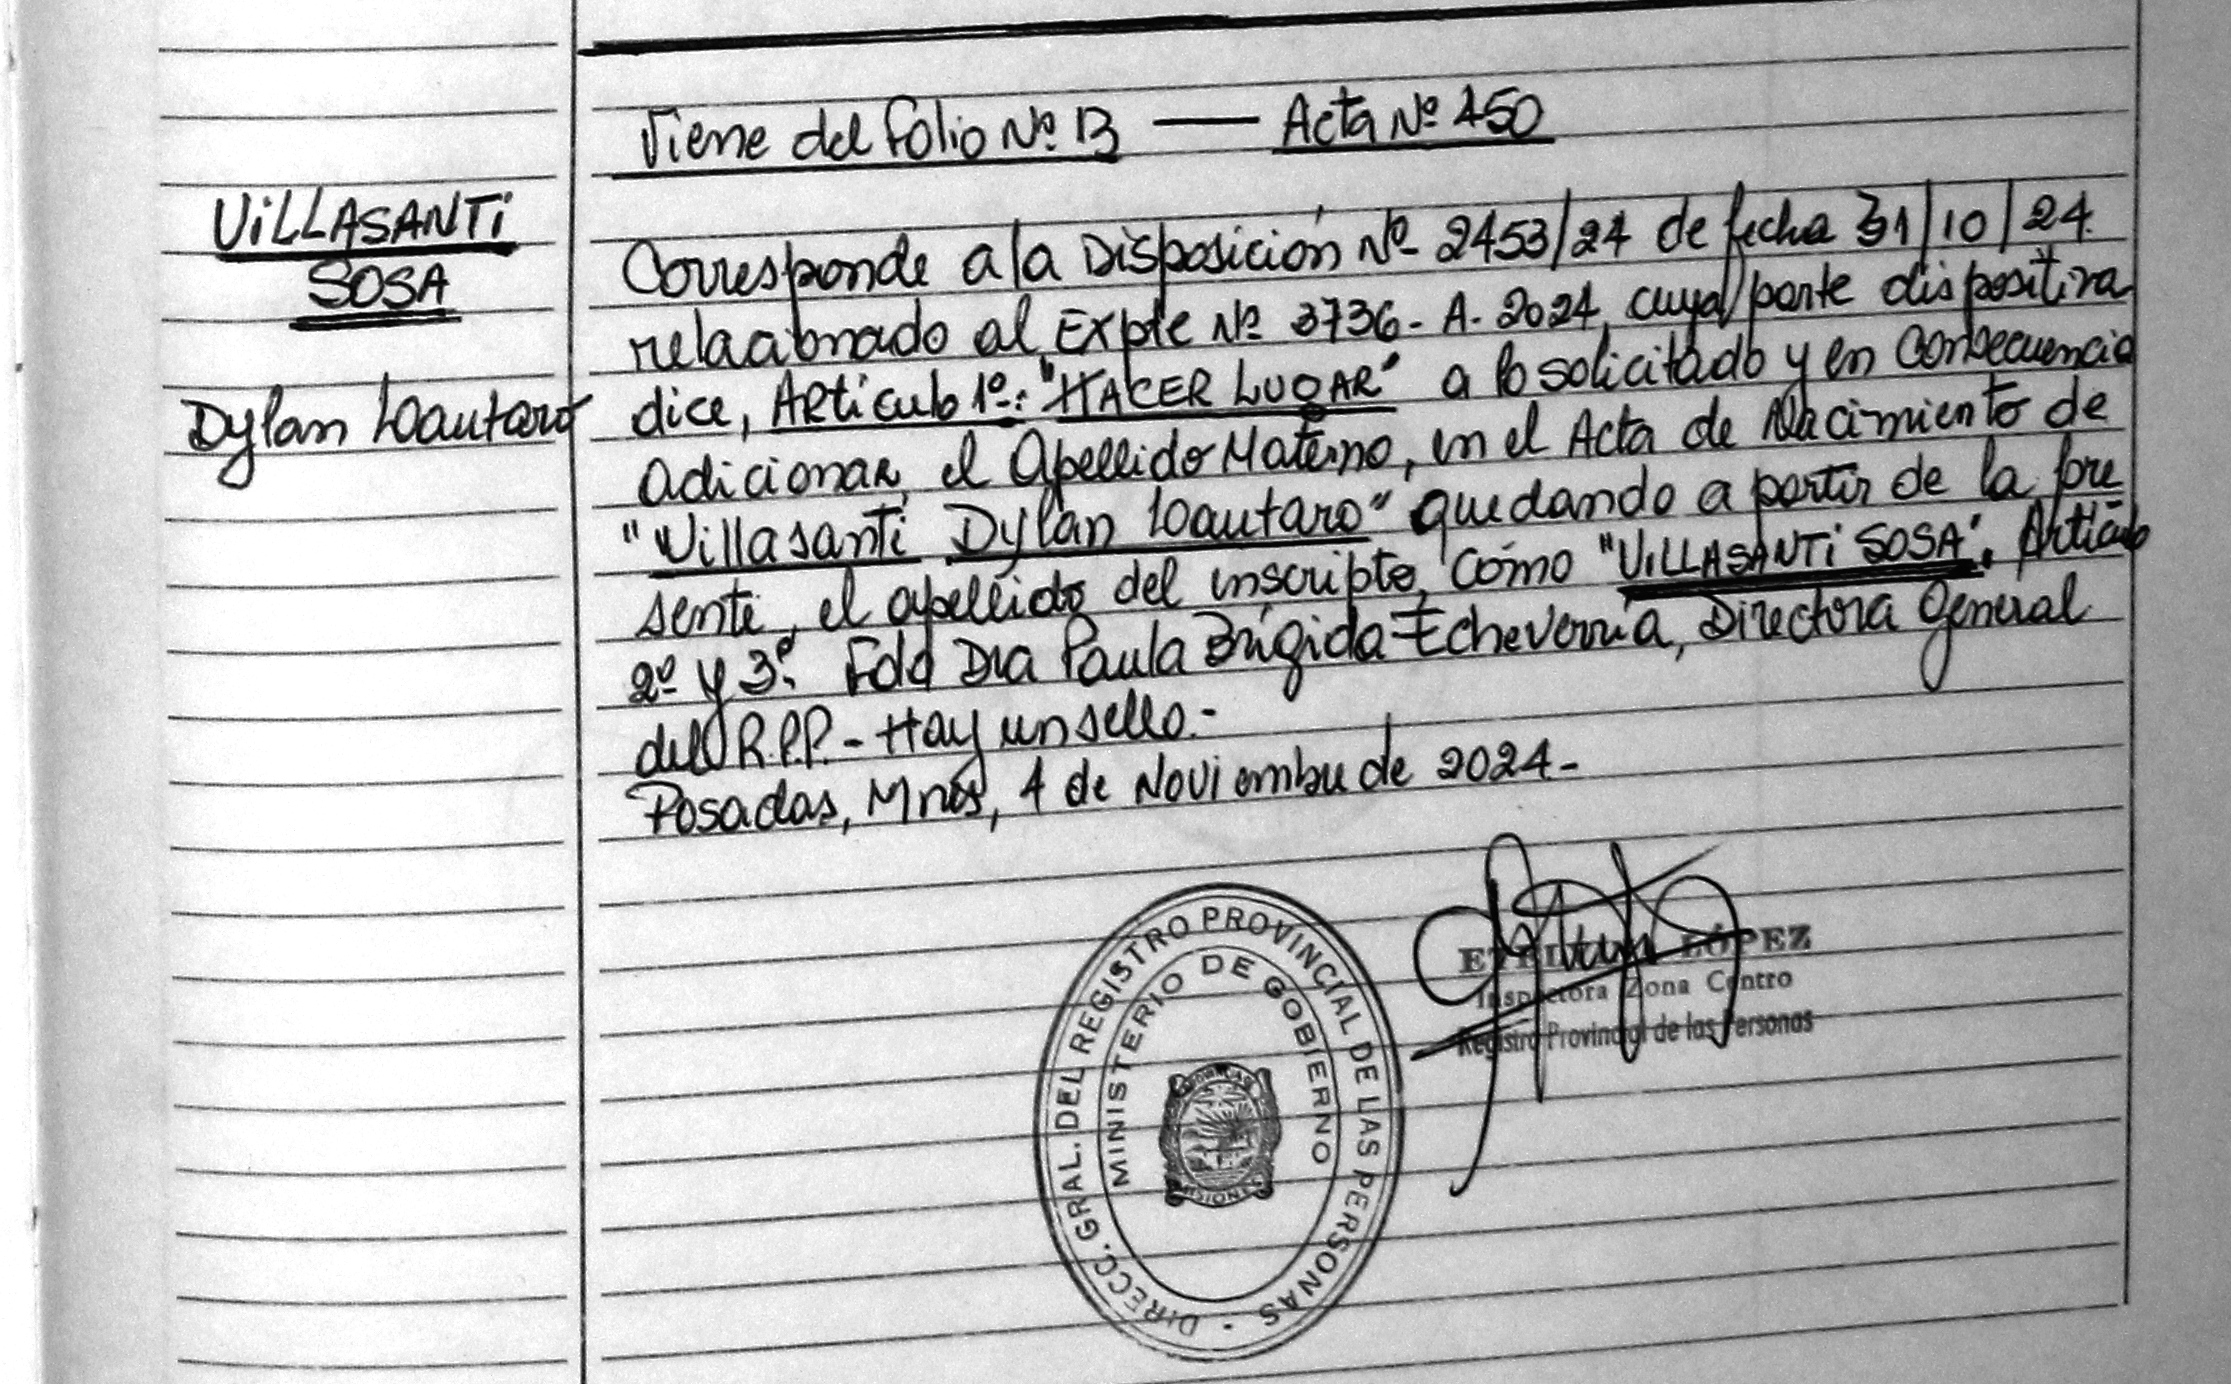 Viene del Folio Nº 13 — Acta Nº 450
VILLASANTI
SOSA
Dylan Loautaro
Corresponde a la Disposición Nº 2453/24 de fecha 31/10/24.
relacionado al Expte Nº 3736-A-2024, cuya parte dispositiva
dice, Artículo 1º: "HACER LUGAR" a lo solicitado y en consecuencia
adicionar, el Apellido Materno, en el Acta de Nacimiento de
"Villasanti Dylan Loautaro" quedando a partir de la pre
sente, el apellido del inscripto, como "VILLASANTI SOSA". Artículo
2º y 3º. Fdo Dra Paula Brígida Echeverría, Directora General
del R.P.P. - Hay un sello.-
Posadas, Mnes, 4 de Noviembre de 2024-
LÓPEZ
Inspectora Zona Centro
Registro Provincial de las Personas
DIRECC. GRAL. DEL REGISTRO PROVINCIAL DE LAS PERSONAS
MINISTERIO DE GOBIERNO
MISIONES